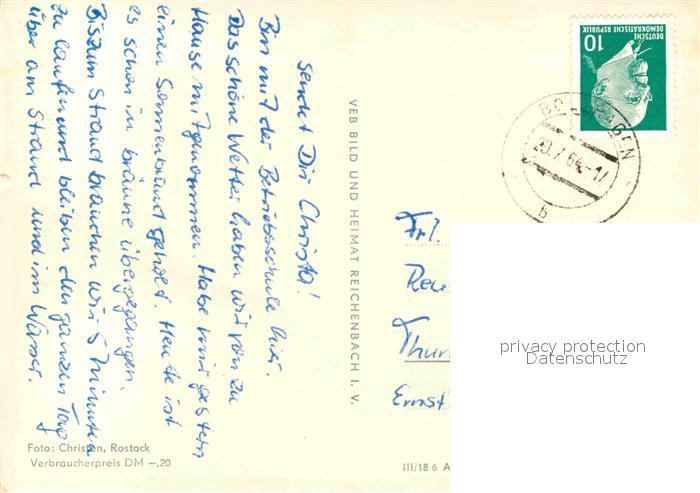 sendet Dir Christa!
Bin mit der Betriebsschule hier.
Das schöne Wetter haben wir von zu
Hause mitgenommen. Habe mir gestern
einen Sonnenbrand geholt. Heute ist
es schon in Bräune übergegangen.
Bis zum Strand brauchen wir 5 Minuten
zu laufen und bleiben den ganzen Tag
über am Strand und im Wasser.
Foto: Christen, Rostock
Verbraucherpreis DM –,20
VEB BILD UND HEIMAT REICHENBACH I. V.
III/18 6 A
DEUTSCHE
DEMOKRATISCHE REPUBLIK
10
20.7.64-17
b
Frl.
Thum
Ernst
privacy protection
Datenschutz